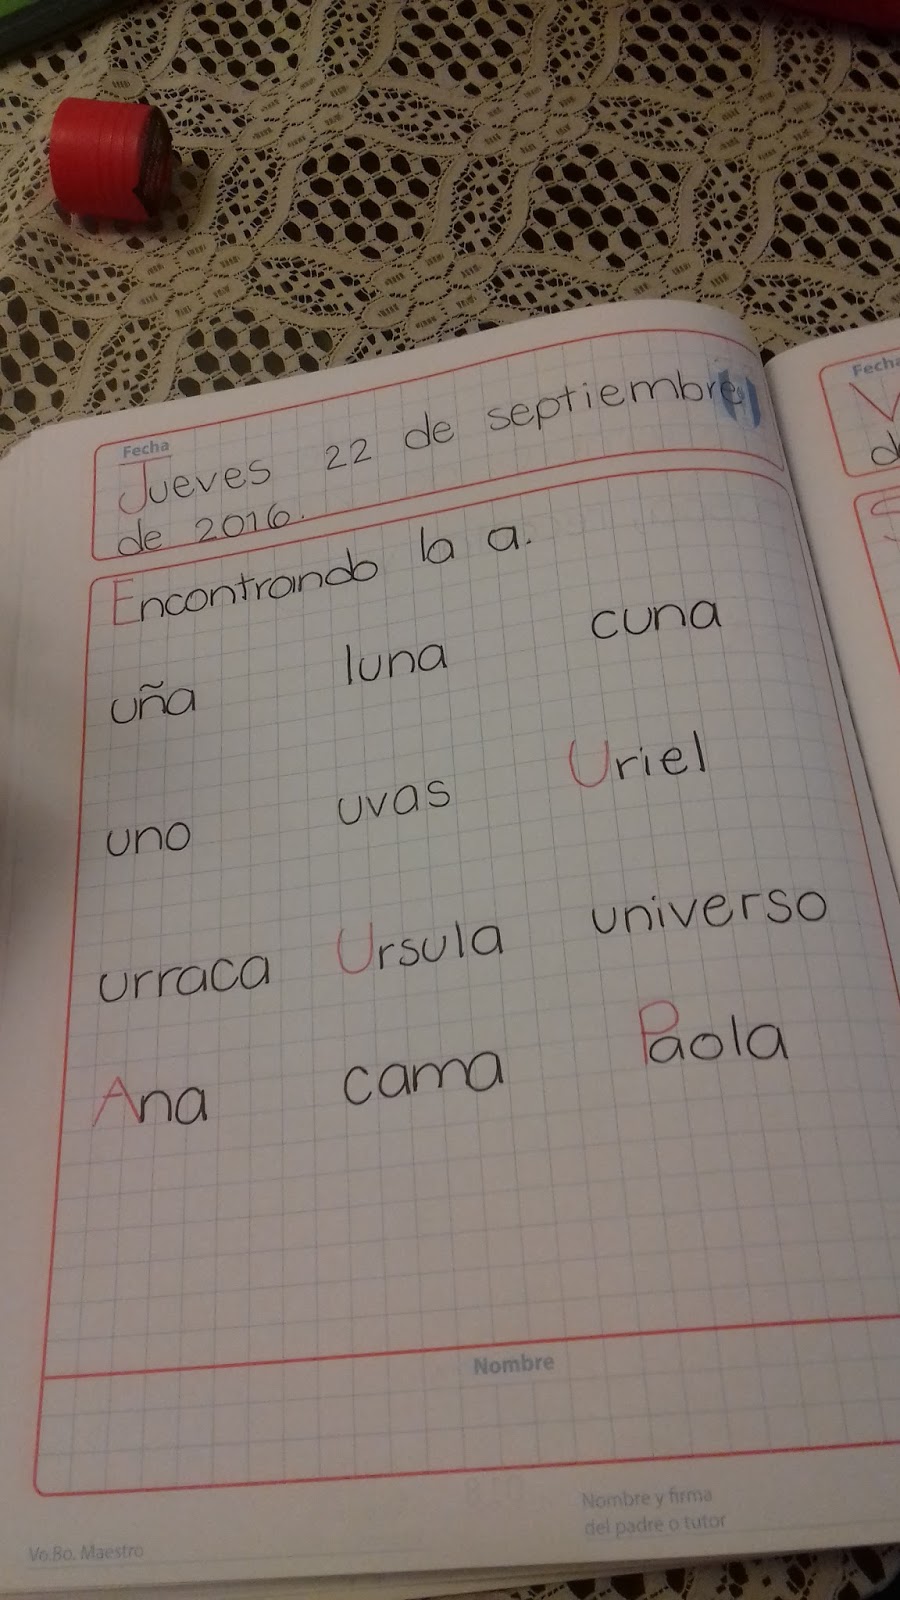 Fecha
Jueves 22 de septiembre
de 2016.
Encontrando la a.
uña luna cuna
uno uvas Uriel
urraca Ursula universo
Ana cama Paola
Nombre
Nombre y firma
del padre o tutor
Vo.Bo. Maestro
Fecha
V
de